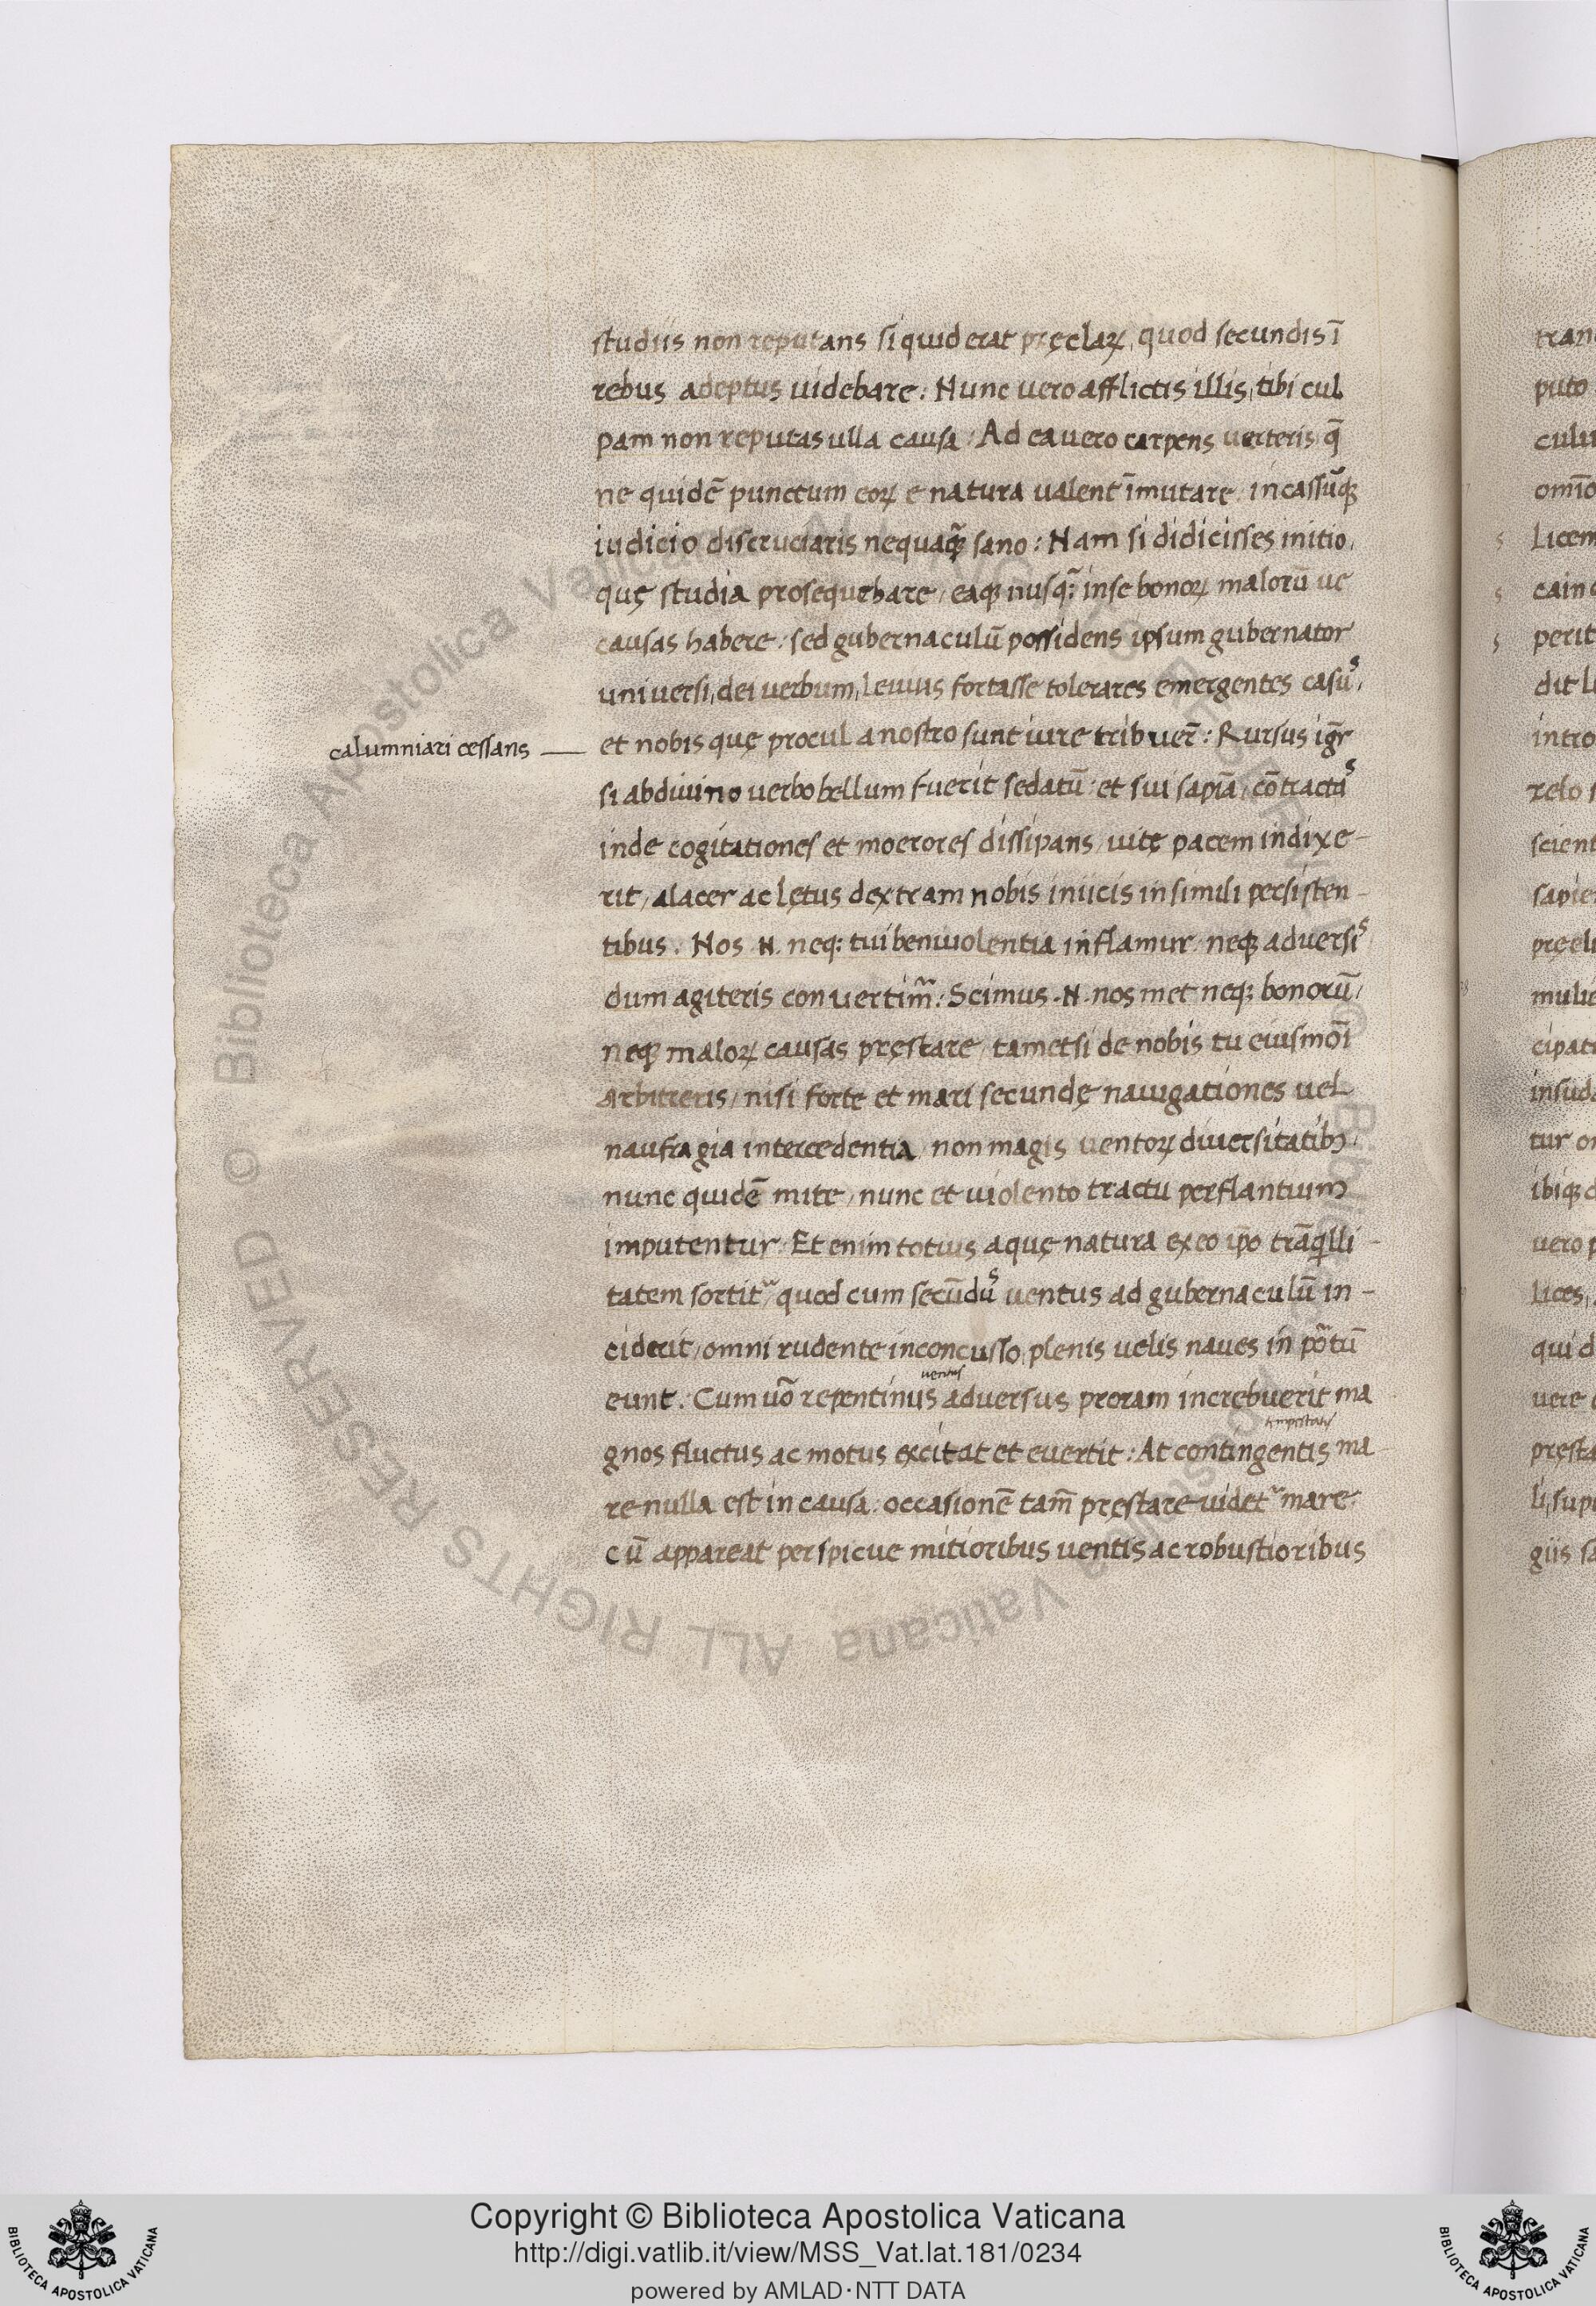 studiis non reputans si quid erat pręclarꝝ, quod secundis ī
rebus adeptus uidebare: Nunc vero afflictis illis, tibi cul
pam non reputas ulla causa: Ad ea uero carpens uerteris, q̄
ne quidē punctum eorꝝ e natura ualent īmutare: incassūqꝫ
iudicio discruciaris nequaq̄ꝫ sano: Nam si didicisses initio,
quę studia prosequebare, eaqꝫ nusq̄ꝫ in se bonorꝝ malorū ue
causas habere: sed gubernaculū possidens ipsum gubernator
universi, dei verbum, Leuius fortasse tolerares emergentes casūs,
calumniari cessans —
et nobis quę procul a nostro sunt iure tribuer̄: Rursus igr̄
si ab diuino verbo bellum fuerit sedatū: et sui sapīa, cōtractas
inde cogitationes et moerores dissipans, uitę pacem indixe-
rit, alacer ac lętus dextram nobis iniicis in simili persisten-
tibus. Nos .N. neq: tui beniuolentia inflamur: neqꝫ adversis
dum agiteris convertim̄: Scimus .N. nos met neqꝫ bonorū,
neqꝫ malorꝝ causas pręstare, tametsi de nobis tu eiusmōi
Arbitreris, nisi forte et mari secundę nauigationes uel
naufragia intercedentia, non magis uentorꝝ diuersitatibꝫ,
nunc quidē mite, nunc et uiolento tractu perflantium
imputentur: Et enim totius aquę natura ex eo ip̄o trāq̇lli-
tatem sortit᷑, quod cum secūdus uentus ad gubernaculū in-
ciderit, omni rudente inconcusso, plenis uelis naues in portū
uentus
eunt: Cum u̅o repentinus adversus proram increbuerit ma
tempestatis
gnos fluctus ac motus excitat et evertit: At contingentis ma-
re nulla est in causa: occasionē tam̄ pręstare uidet᷑ mare:
cū appareat perspicue mitioribus ventis ac robustioribus
tran
puto
omīo
Licem
cain
perit
dit
intro
zelo
scient
sapie
muli
cipat
insud
tur
ibiqꝫ
vero
Lices,
qui
vere
pręsta
li, sup
giis
Copyright © Biblioteca Apostolica Vaticana
http://digi.vatlib.it/view/MSS_Vat.lat.181/0234
powered by AMLAD·NTT DATA
BIBLIOTECA APOSTOLICA VATICANA
BIBLIOTECA APOSTOLICA VATICANA
© Biblioteca Apostolica Vaticana ALL RIGHTS RESERVED